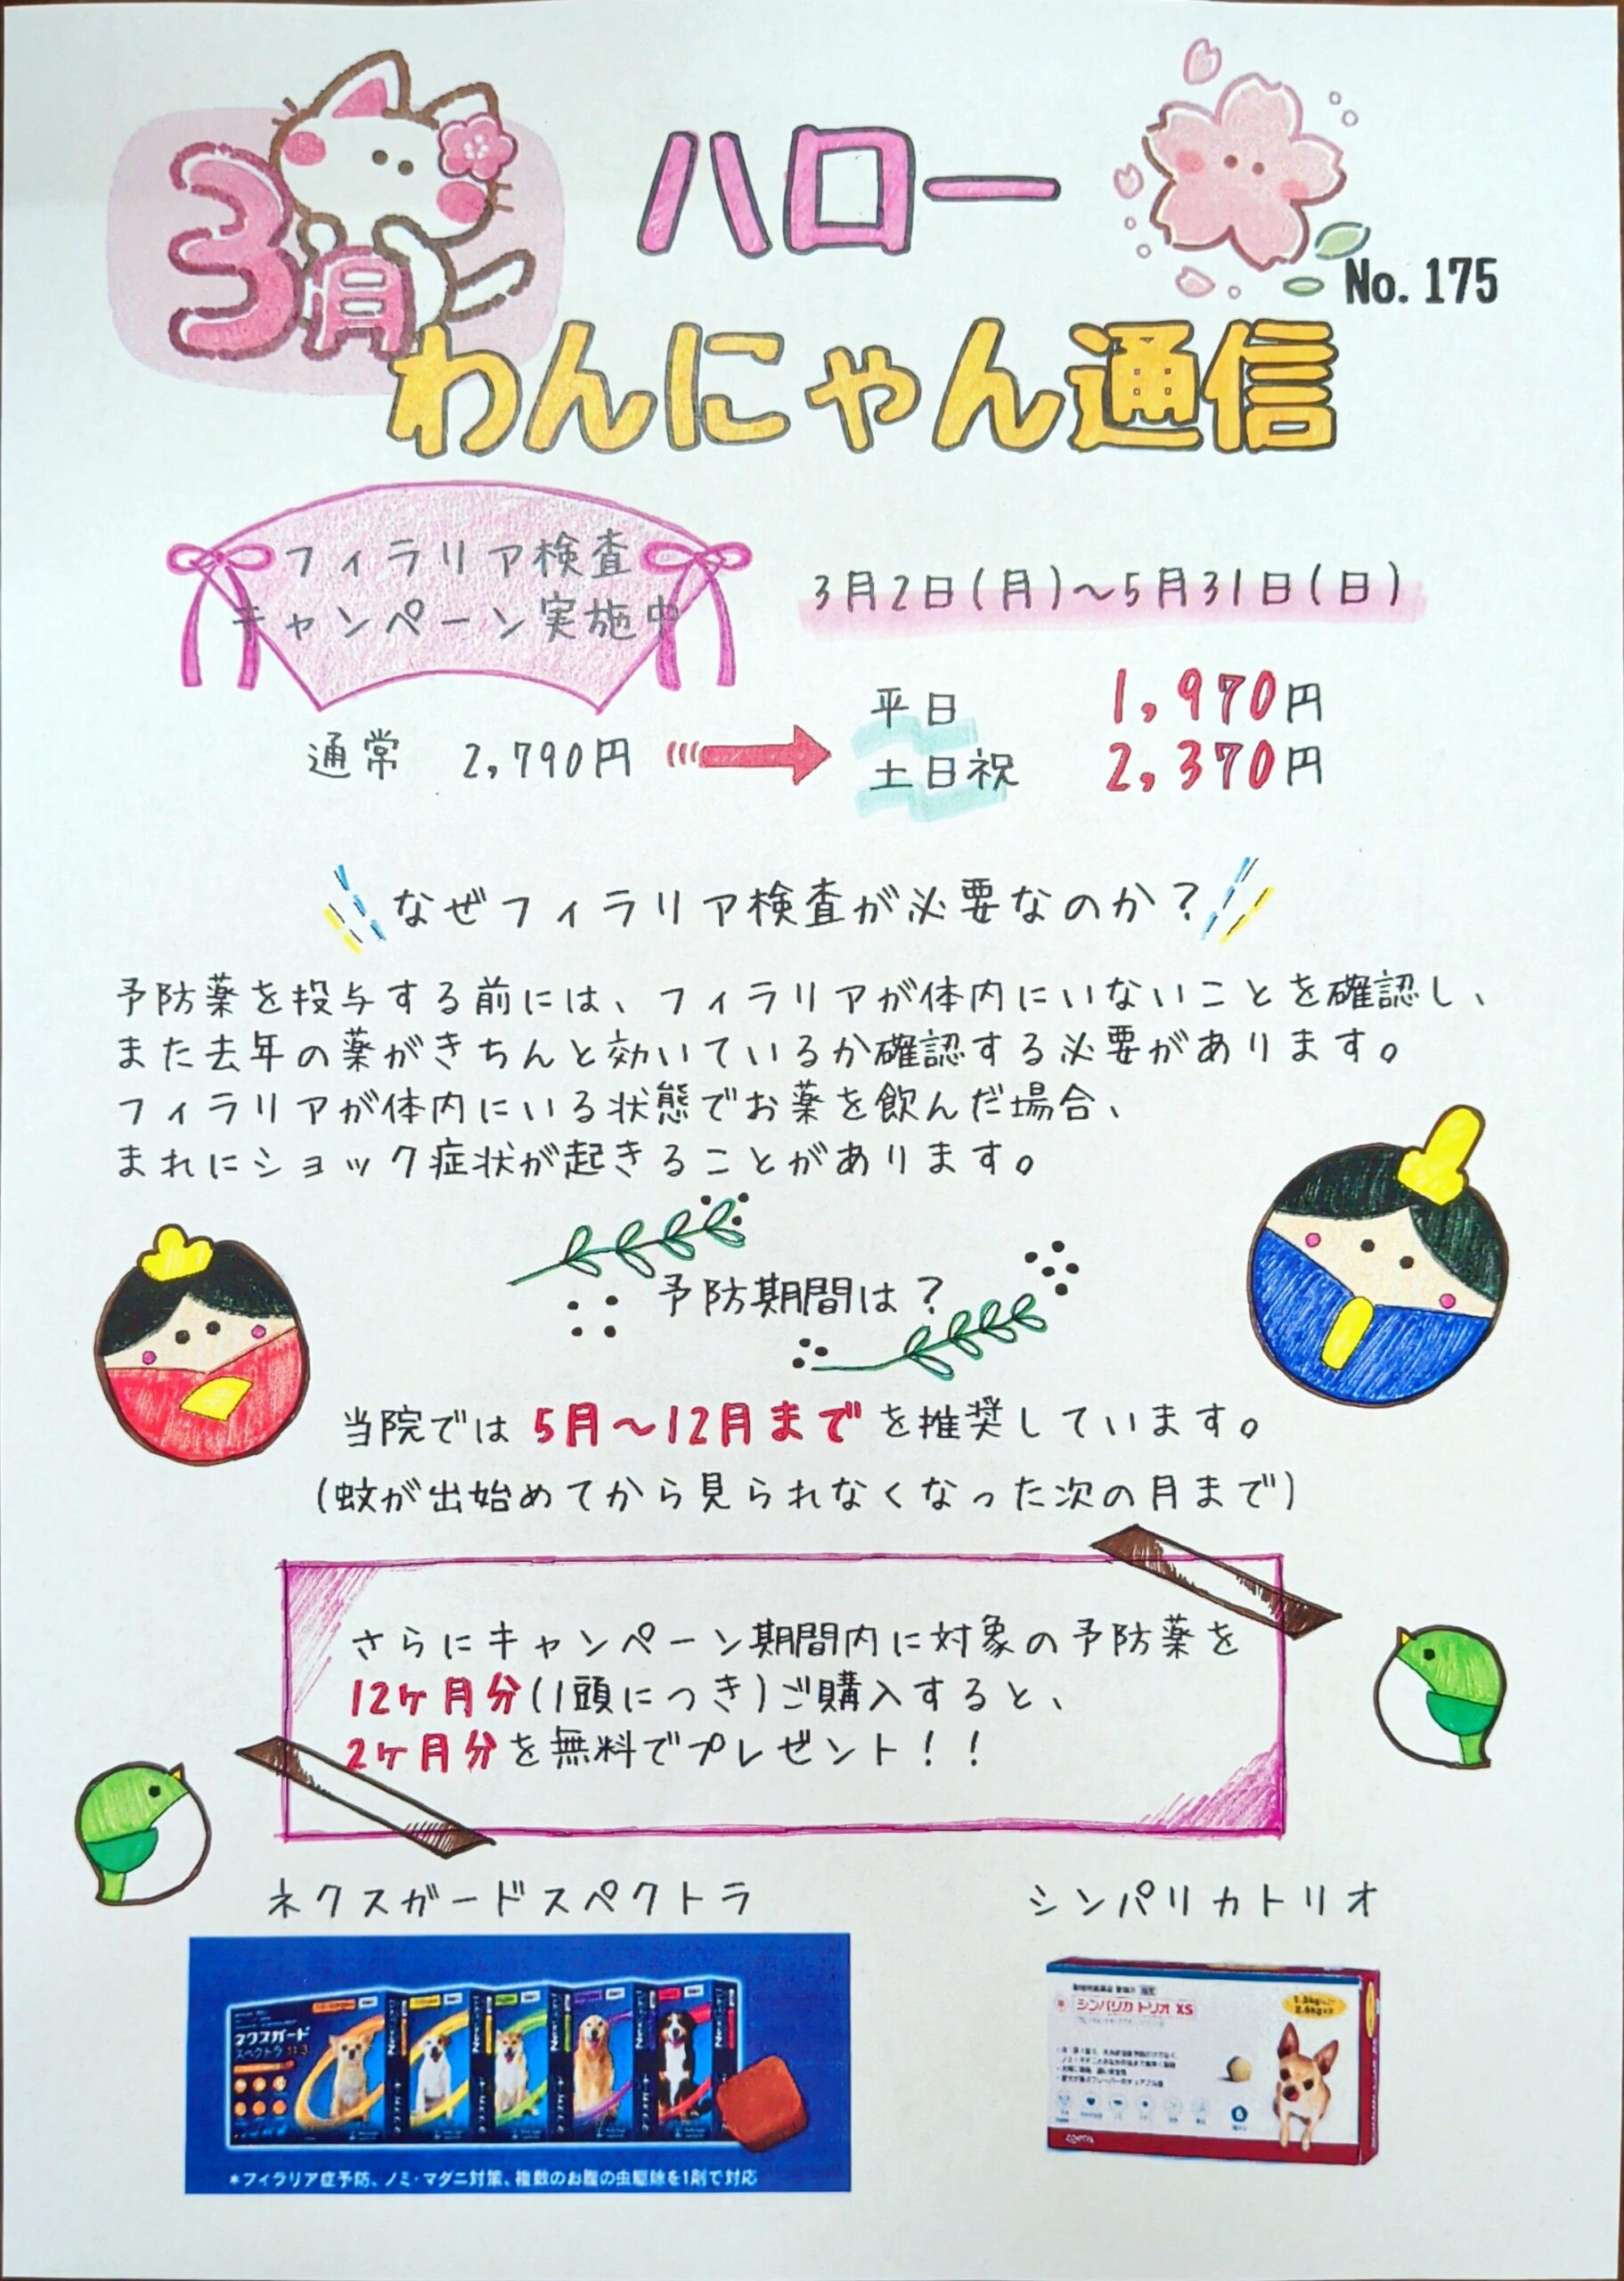 3月
ハロー
No. 175
わんにゃん通信
フィラリア検査
キャンペーン実施中
3月2日(月)~5月31日(日)
通常 2,790円
平日 1,970円
土日祝 2,370円
なぜフィラリア検査が必要なのか?
予防薬を投与する前には、フィラリアが体内にいないことを確認し、
また去年の薬がきちんと効いているか確認する必要があります。
フィラリアが体内にいる状態でお薬を飲んだ場合、
まれにショック症状が起きることがあります。
予防期間は?
当院では 5月~12月まで を推奨しています。
(蚊が出始めてから見られなくなった次の月まで)
さらにキャンペーン期間内に対象の予防薬を
12ヶ月分(1頭につき)ご購入すると、
2ヶ月分を無料でプレゼント!!
ネクスガードスペクトラ
シンパリカトリオ
ネクスガード
スペクトラ 11.3
*フィラリア症予防、ノミ・マダニ対策、複数のお腹の虫駆除を1剤で対応
シンパリカ トリオ XS
zoetis